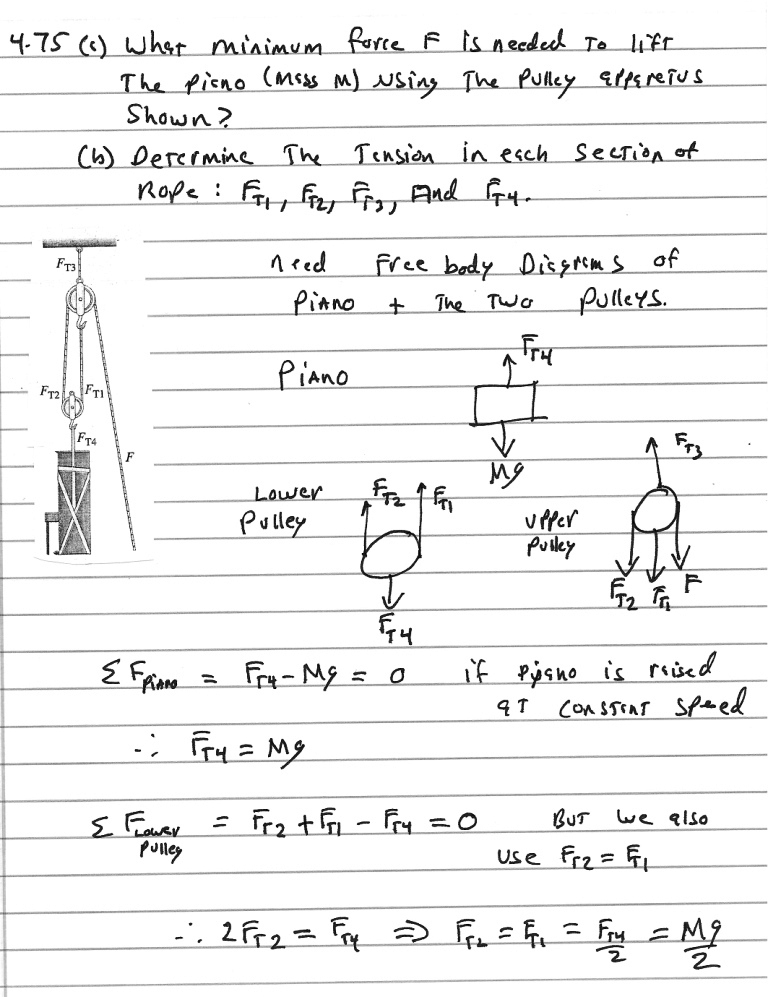 4-75 (a) What minimum force F is needed to lift
the piano (mass M) using the pulley apparatus
shown?
(b) Determine the tension in each section of
rope: F_T1, F_T2, F_T3, and F_T4.
F_T3
F_T2
F_T1
F_T4
F
need free body diagrams of
piano + the two pulleys.
Piano
F_T4
Mg
Lower
Pulley
F_T2
F_T1
F_T4
upper
pulley
F_T3
F_T2
F_T1
F
Σ F_piano = F_T4 - Mg = 0 if piano is raised
at constant speed
∴ F_T4 = Mg
Σ F_Lower pulley = F_T2 + F_T1 - F_T4 = 0 But we also
use F_T2 = F_T1
∴ 2F_T2 = F_T4 ⇒ F_T2 = F_T1 = F_T4/2 = Mg/2